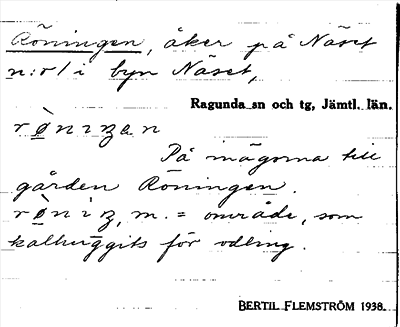 Röningen, åker på Näset
n:r 1 i byn Näset,
Ragunda sn och tg, Jämtl. län.
rø̀niŋen
På inägorna till
gården Röningen.
rø̀niŋ, m. = område, som
kalhuggits för odling.
BERTIL FLEMSTRÖM 1938.